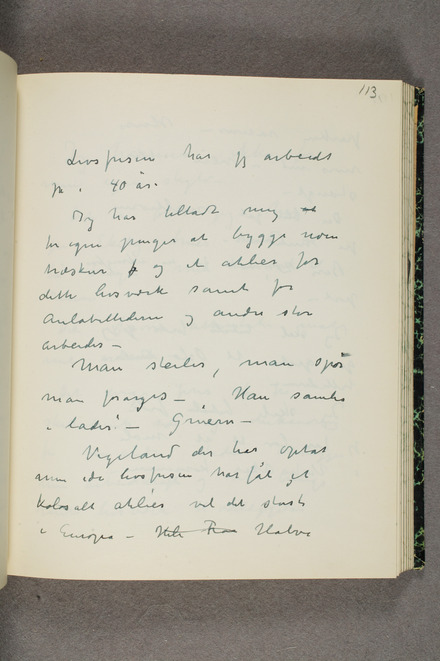 113.
Livsfrisen har jeg arbeidt
på i 40 år.
Jeg har tilladt mig at
for egne penger at bygge noen
træskur og et atelier for
dette livsværk samt for
Aulabillederne og andre store
arbeider –
Man steiler, man spør
man forarges – Han samler
i lader! – Gnieren –
Vigeland der har optat
min ide livsfrisen har fåt et
kolosalt atelier vel det størst
i Europa – Hele Fra Halve